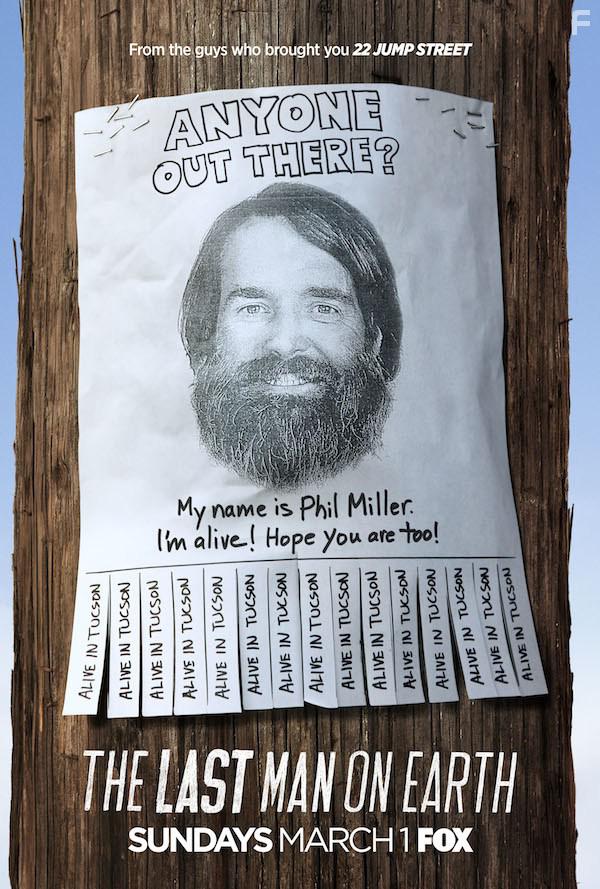 F
From the guys who brought you 22 JUMP STREET
ANYONE
OUT THERE?
My name is Phil Miller.
I'm alive! Hope you are too!
ALIVE IN TUCSON
ALIVE IN TUCSON
ALIVE IN TUCSON
ALIVE IN TUCSON
ALIVE IN TUCSON
ALIVE IN TUCSON
ALIVE IN TUCSON
ALIVE IN TUCSON
ALIVE IN TUCSON
ALIVE IN TUCSON
ALIVE IN TUCSON
ALIVE IN TUCSON
ALIVE IN TUCSON
ALIVE IN TUCSON
ALIVE IN TUCSON
THE LAST MAN ON EARTH
SUNDAYS MARCH 1 FOX